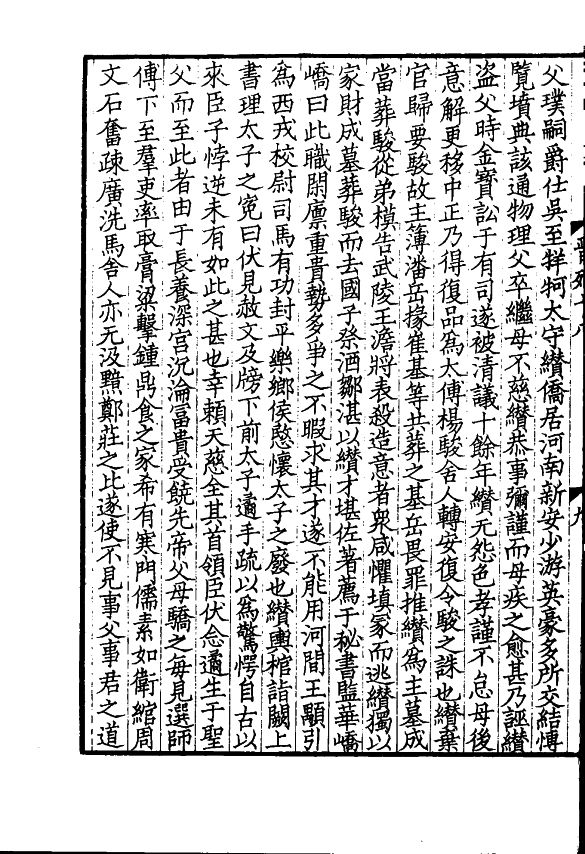 父璞嗣爵仕吳至牂牁太守纘僑居河南新安少游英豪多所交結博
覽墳典該通物理父卒繼母不慈纘恭事彌謹而母疾之愈甚乃誣纘
盗父時金寶訟于有司遂被清議十餘年纘无怨色孝謹不怠母後
意解更移中正乃得復品爲太傅楊駿舍人轉安復令駿之誅也纘棄
官歸要駿故主簿潘岳掾崔基等共葬之基岳畏罪推纘爲主墓成
當葬駿從弟模告武陵王澹將表殺造意者衆咸懼填冢而逃纘獨以
家財成墓葬駿而去國子祭酒鄒湛以纘才堪佐著薦于秘書監華嶠
嶠曰此職閑廪重貴勢多爭之不暇求其才遂不能用河間王顒引
爲西戎校尉司馬有功封平樂鄉侯愍懷太子之廢也纘輿棺詣闕上
書理太子之寃曰伏見赦文及牓下前太子遹手疏以爲驚愕自古以
來臣子悖逆未有如此之甚也幸賴天慈全其首領臣伏念遹生于聖
父而至此者由于長養深宮沉淪富貴受饒先帝父母驕之每見選師
傅下至羣吏率取膏粱擊鍾鼎食之家希有寒門儒素如衛綰周
文石奮疎廣洗馬舍人亦无汲黯鄭莊之比遂使不見事父事君之道